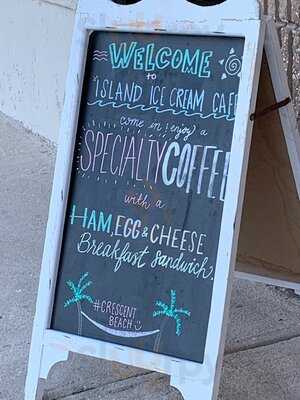 WELCOME
to
ISLAND ICE CREAM CAFE
come in! enjoy a
SPECIALTY COFFEE
with a
HAM, EGG & CHEESE
Breakfast Sandwich.
#CRESCENT
BEACH